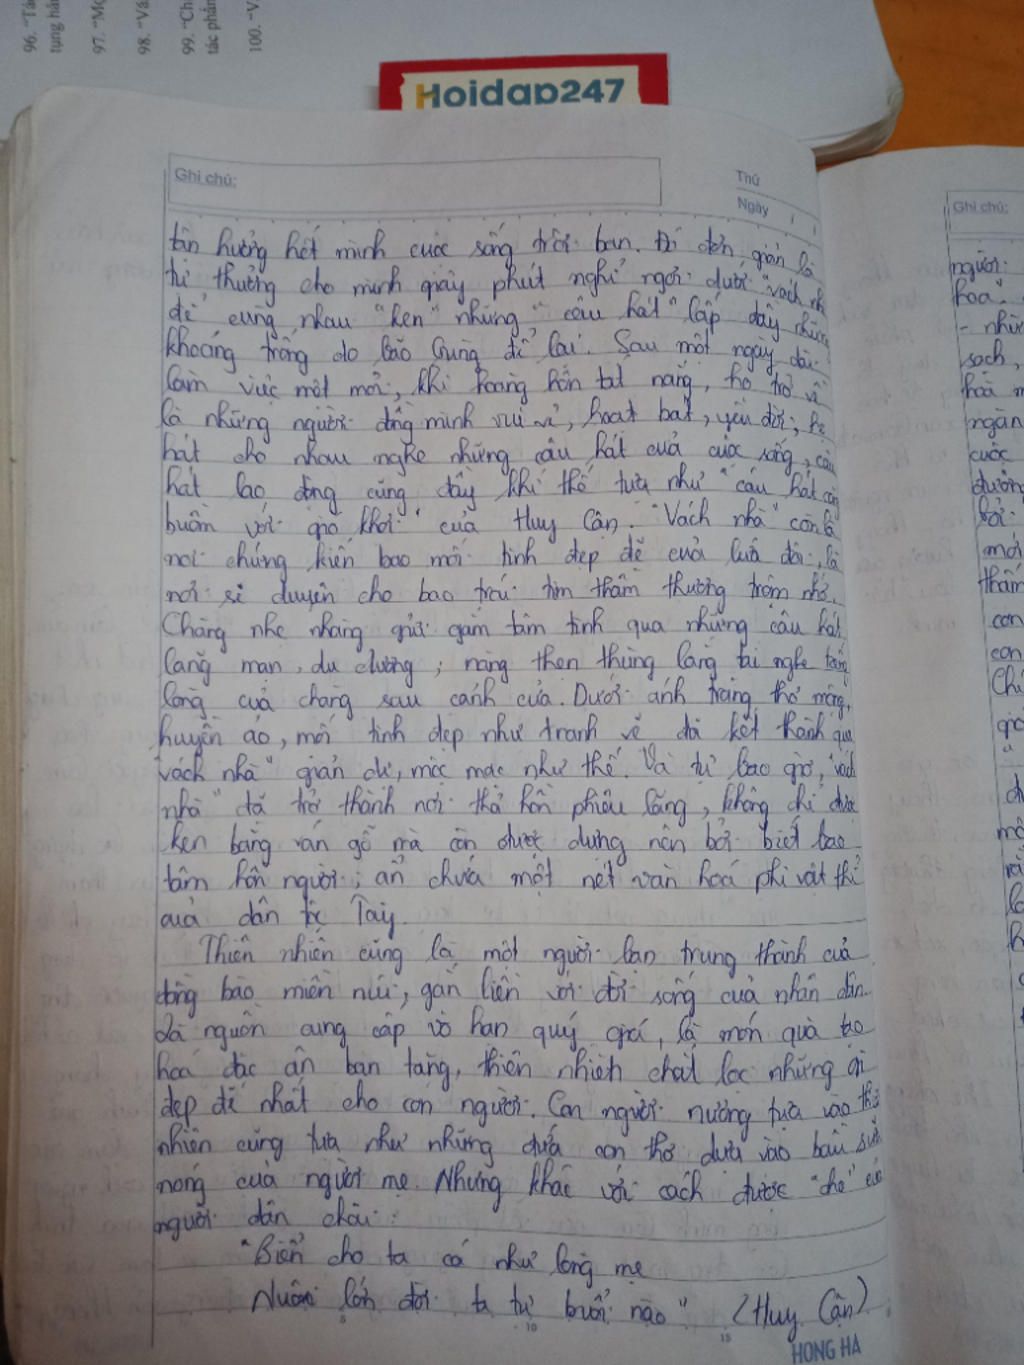 96. "Tá
tụng há
97. "Mọ
98. "Vá
99. "Ch
tác phẩn
100. "V
Hoidap247
Ghi chú:
Thứ
Ngày
tận hưởng hết mình cuộc sống trời ban. Đó đơn giản là
tự thưởng cho mình giây phút nghỉ ngơi dưới "vách nh
để cùng nhau "ken" những "câu hát" lấp đầy những
khoảng trống do lao lung để lại. Sau một ngày dài
làm việc mệt mỏi, khi hoàng hôn tắt nắng, họ trở về
là những người đồng mình vui vẻ, hoạt bát, yêu đời, họ
hát cho nhau nghe những câu hát của cuộc sống, câu
hát lao động cũng đầy khí thế tựa như "câu hát căng
buồm với gió khơi" của Huy Cận. "Vách nhà" còn là
nơi chứng kiến bao mối tình đẹp đẽ của lứa đôi, là
nơi se duyên cho bao trái tim thầm thương trộm nhớ.
Chàng nhẹ nhàng gửi gắm tâm tình qua những câu hát
lãng mạn, du dương; nàng then thùng lắng tai nghe tiếng
lòng của chàng sau cánh cửa. Dưới ánh trăng thơ mộng,
huyền ảo, mối tình đẹp như tranh vẽ đã kết thành qua
"vách nhà" giản dị, mộc mạc như thế. Và tự bao giờ, "vách
nhà" đã trở thành nơi thả hồn phiêu lãng, không chỉ được
ken bằng ván gỗ mà còn được dựng nên bởi biết bao
tâm hồn người; ẩn chứa một nét văn hoá phi vật thể
của dân tộc Tày.
Thiên nhiên cũng là một người bạn trung thành của
đồng bào miền núi, gắn liền với đời sống của nhân dân
là nguồn cung cấp vô hạn quý giá, là món quà tạo
hoá đặc ân ban tặng, thiên nhiên chắt lọc những gì
đẹp đẽ nhất cho con người. Con người nương tựa vào thiên
nhiên cũng tựa như những đứa con thơ dựa vào bầu sữa
nóng của người mẹ. Nhưng khác với cách được "chở" của
người dân chài:
"Biển cho ta cá như lòng mẹ
Nuôi lớn đời ta tự buổi nào" (Huy Cận)
5
10
15
HONG HA
Ghi chú:
người
hoá
- nhữ
sạch,
hoá m
ngàn
cuộc
đường
bởi
mới
thấm
con
con
Chí
giờ